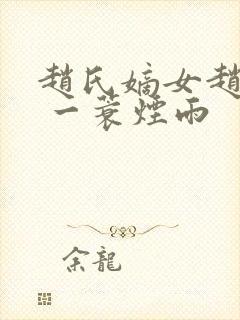 趙氏嫡女趙
一蓑煙雨
余龍